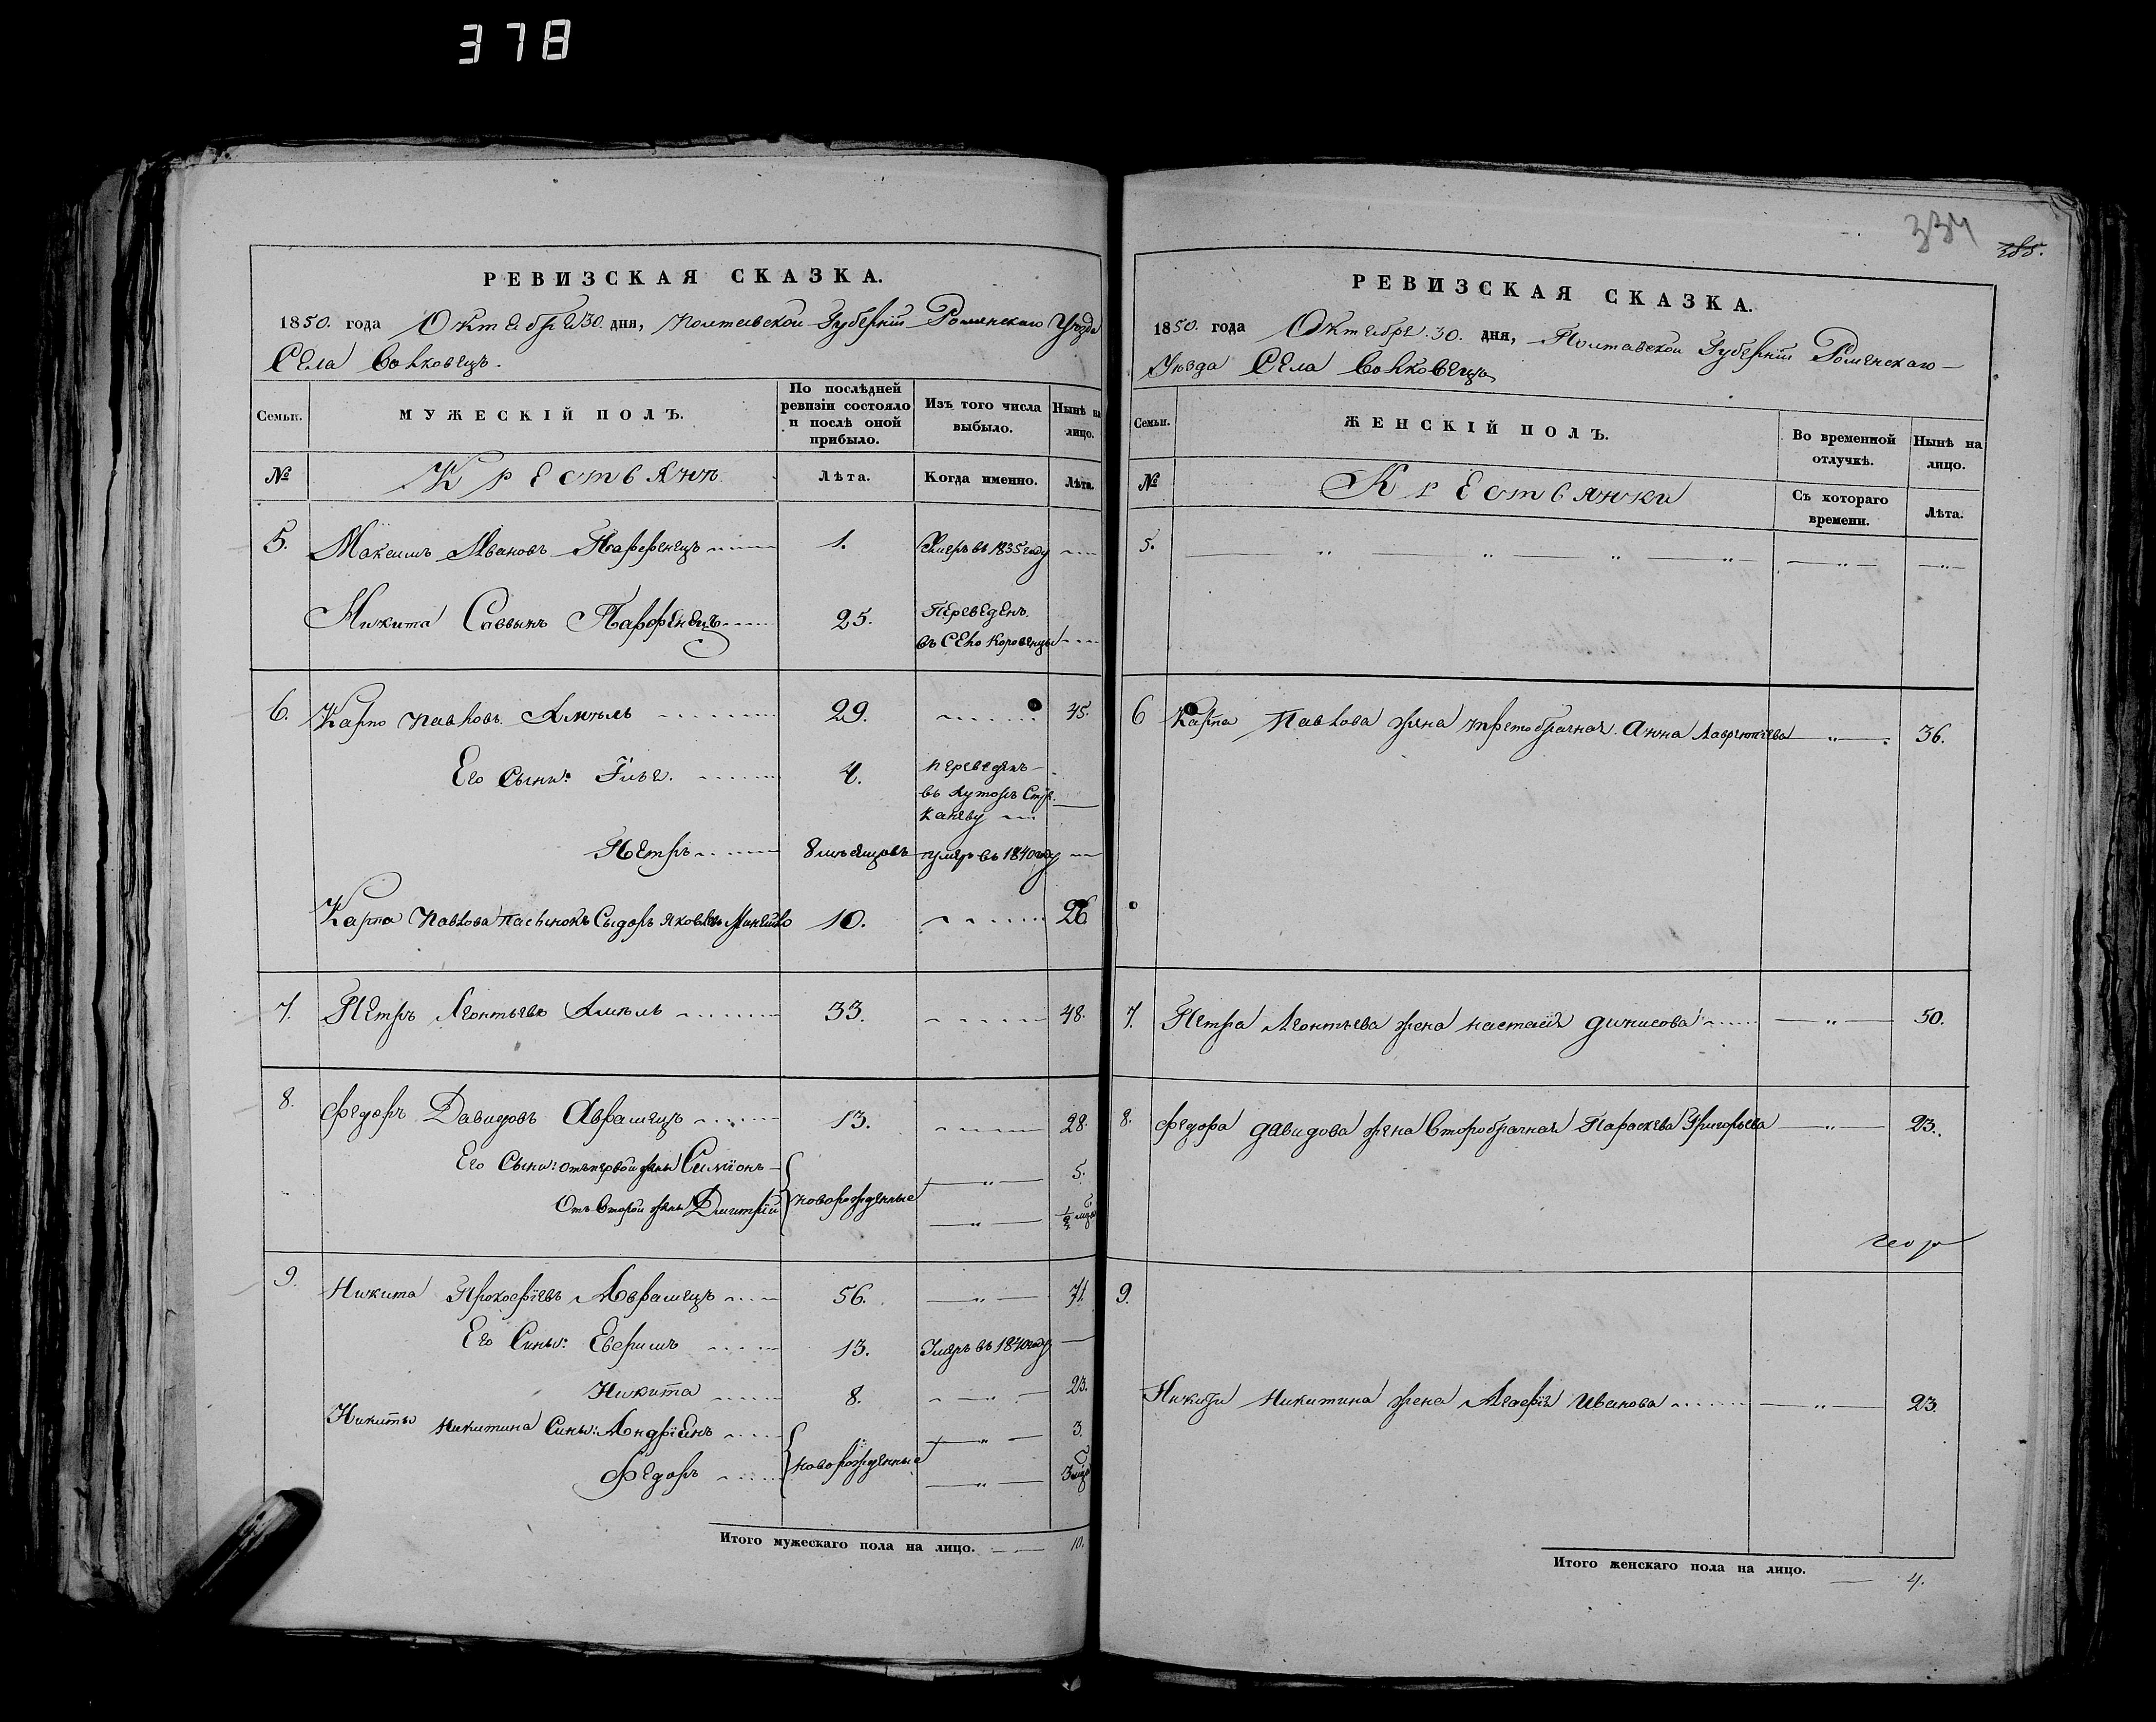 378
РЕВИЗСКАЯ СКАЗКА.
1850. года Октября 30. дня, Полтавской Губернiи Роменскаго Уѣзда
Села Волковецъ.
Семьи. МУЖЕСКІЙ ПОЛЪ. По послѣдней ревизіи состояло и послѣ оной прибыло. Изъ того числа выбыло. Нынѣ на лицо.
№ Крестьянъ Лѣта. Когда именно. Лѣта.
5. Максимъ Ивановъ Парфенецъ 1. Умеръ въ 1835 году
Никита Саввинъ Парфенецъ 25. Переведенъ
въ Село Коровенцы
6. Карпо Павловъ 29. 45.
Его Сыны: Илья. 4. переведенъ
въ Хуторъ
Петръ 8 мѣсяцовъ умеръ въ 1840 году
Карпа Павлова пасынокъ Сыдоръ Яковлевъ 10. 26
7. Петръ Леонтьевъ 33. 48.
8. Федоръ Давидовъ Аврамецъ 13. 28.
Его Сыны: отъ первой жены Симiонъ 5.
Отъ Второй жены Дмитрiй новорожденные 1/2
9. Никита Прокофiевъ Аврамецъ 56. 71.
Его Сыны: Ефримъ 13. Умеръ въ 1840 году
Никита 8. 23.
Никиты Никитина Сыны: Андрiенъ 3.
Федоръ новорожденные 3
Итого мужескаго пола на лицо. 10.
334
385.
РЕВИЗСКАЯ СКАЗКА.
1850. года Октября. 30. дня, Полтавской Губернiи Роменскаго
Уѣзда Села Волковецъ
Семьи. ЖЕНСКІЙ ПОЛЪ. Во временной отлучкѣ. Нынѣ на лицо.
№ Крестьянки Съ котораго времени. Лѣта.
5.
6 Карпа Павлова жена третобрачная Анна 36.
7. Петра Леонтьева жена настасiя динисова 50.
8. Федора давидова жена Второбрачная Параскева Григорьева 23.
9.
Никиты Никитина жена Агафiя Иванова 23.
Итого женскаго пола на лицо. 4.